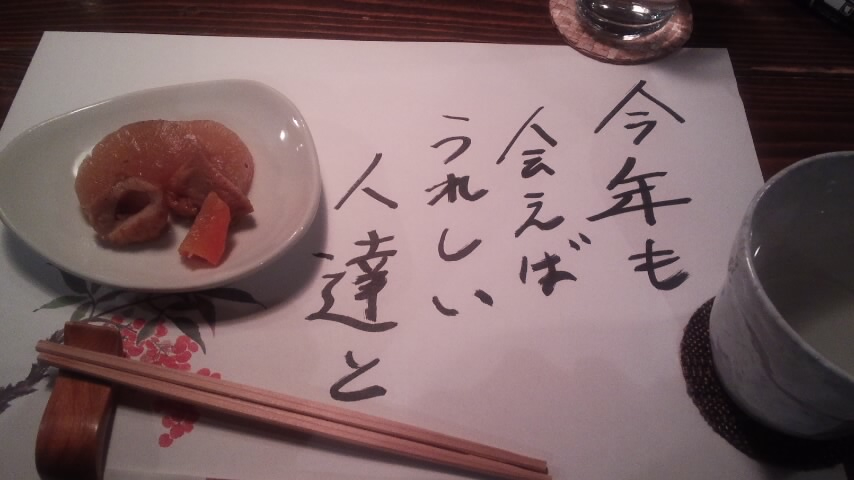 今年も
会えば
うれしい
人達と